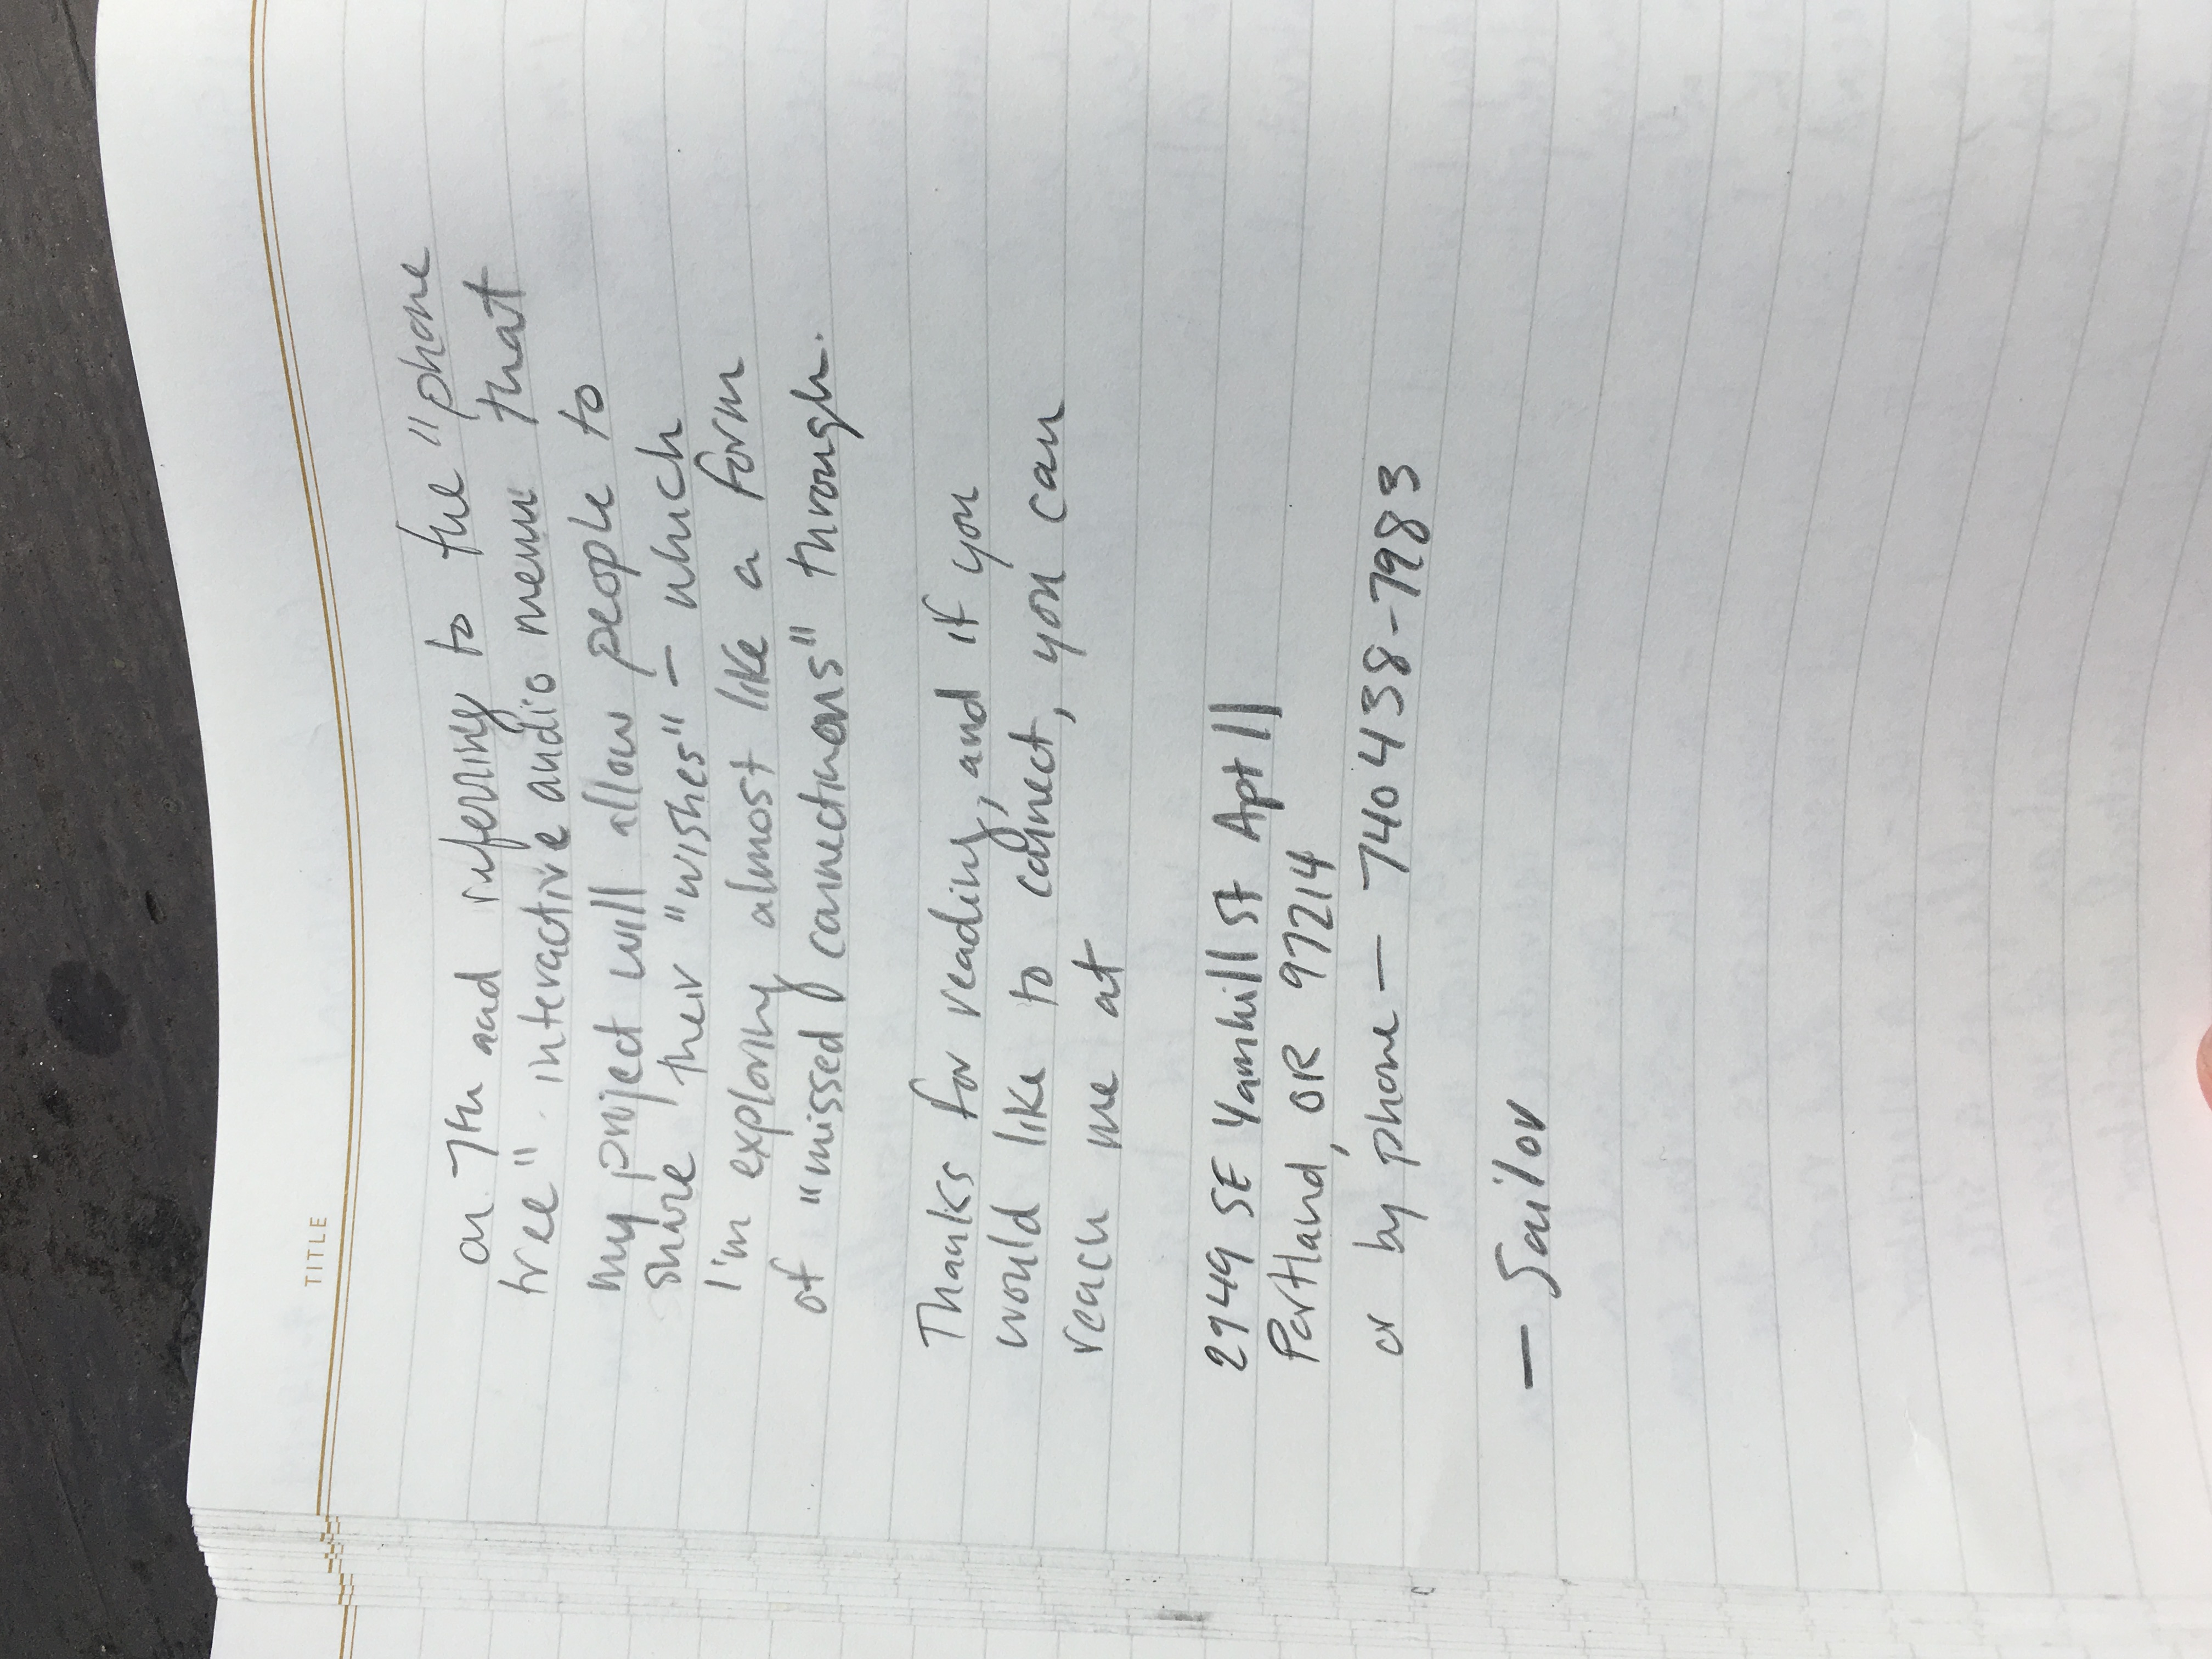 TITLE
on 7th and referring to the "phone
tree" interactive audio menu that
my project will allow people to
share their "wishes" — which
I'm exploring almost like a form
of "missed connections" through.
Thanks for reading, and if you
would like to connect, you can
reach me at
2949 SE Yamhill St Apt 11
Portland, OR 97214
or by phone — 740 438-7983
— Sailor